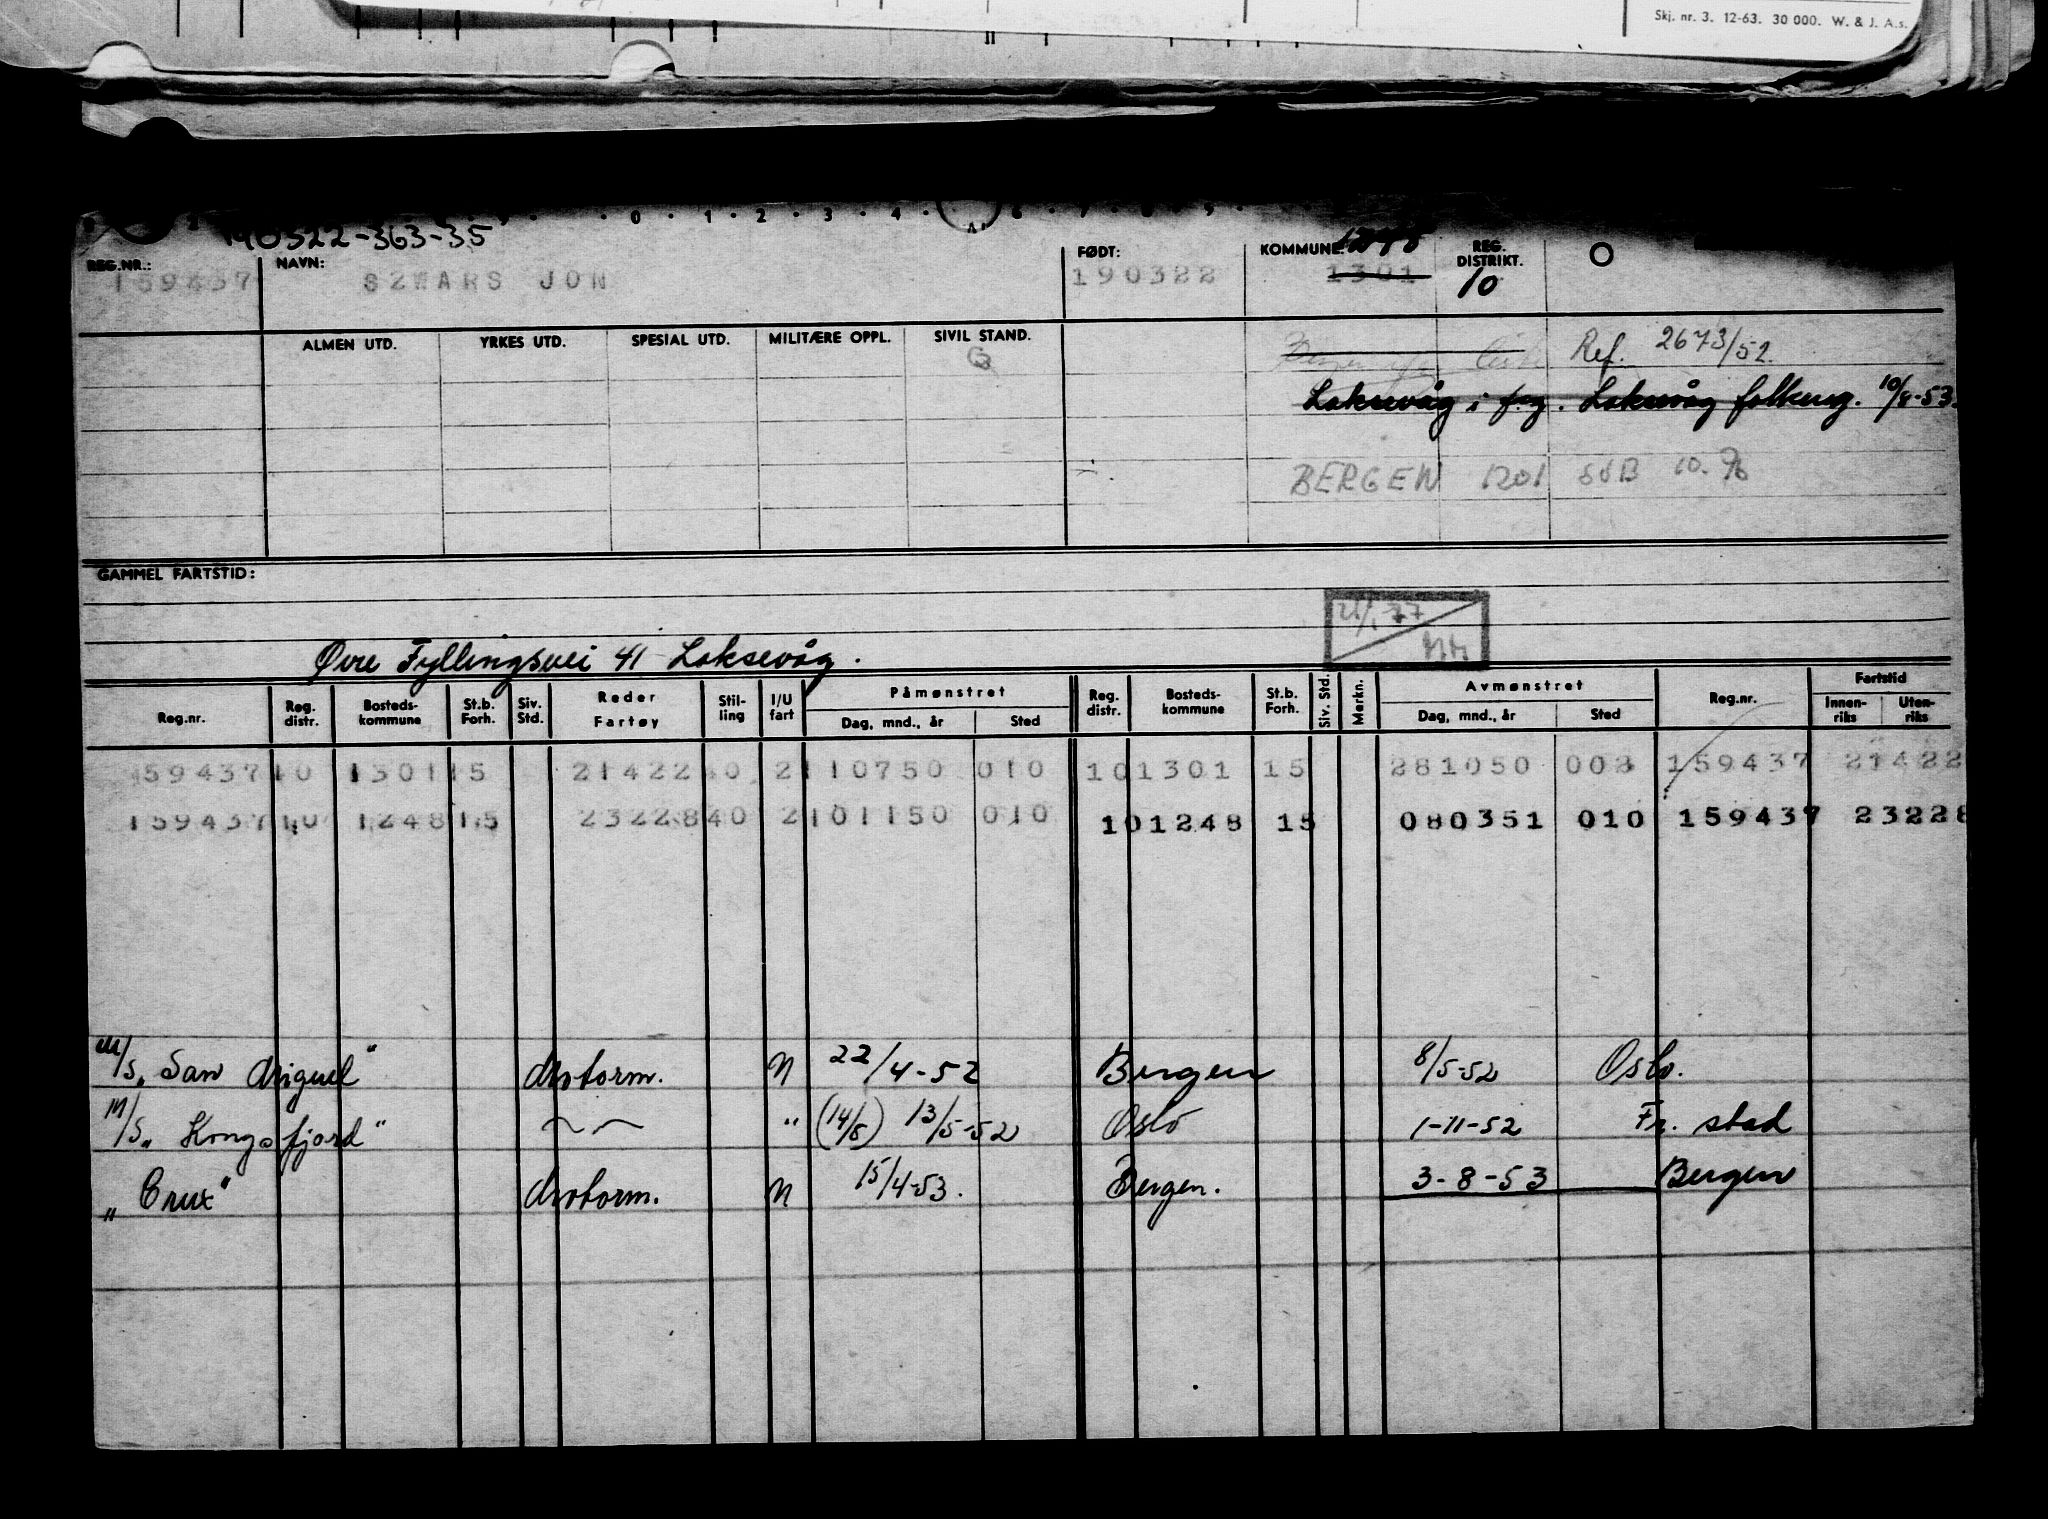 Skj. nr. 3. 12-63. 30 000. W. & J. A.s.
0 . 1 . 2 . 3 . 4 .
190322-363-35 1248
REG.NR.: NAVN: FØDT: KOMMUNE: REG. DISTRIKT. O
159437 SZWARS JON 190322 1301 10
ALMEN UTD. YRKES UTD. SPESIAL UTD. MILITÆRE OPPL. SIVIL STAND.
G Ref. 2673/52.
Laksevåg i flg. Laksevåg folkereg. 10/8-53.
BERGEN 1201 SVB 10.
GAMMEL FARTSTID:
21/1-77
Øvre Fyllingsvei 41 Laksevåg.
Reg.nr. Reg. distr. Bosteds-kommune St.b. Forh. Siv. Std. Reder Fartøy Stil-ling I/U fart Påmønstret Dag, mnd., år Sted Reg. distr. Bosteds-kommune St.b. Forh. Siv. Std. Merkn. Avmønstret Dag, mnd., år Sted Reg.nr. Fartstid Innen-riks Uten-riks
159437 10 1301 15 21422 40 2 110750 010 10 1301 15 281050 008 159437 21422
159437 10 1248 15 23228 40 2 101150 010 10 1248 15 080351 010 159437 23228
M/S "San Miguel" Motorm. N 22/4-52 Bergen 8/5-52 Oslo.
M/S "Kongsfjord" " (14/5) 13/5-52 Oslo 1-11-52 Fr. stad
"Crux" Motorm. N 15/4-53. Bergen. 3-8-53 Bergen